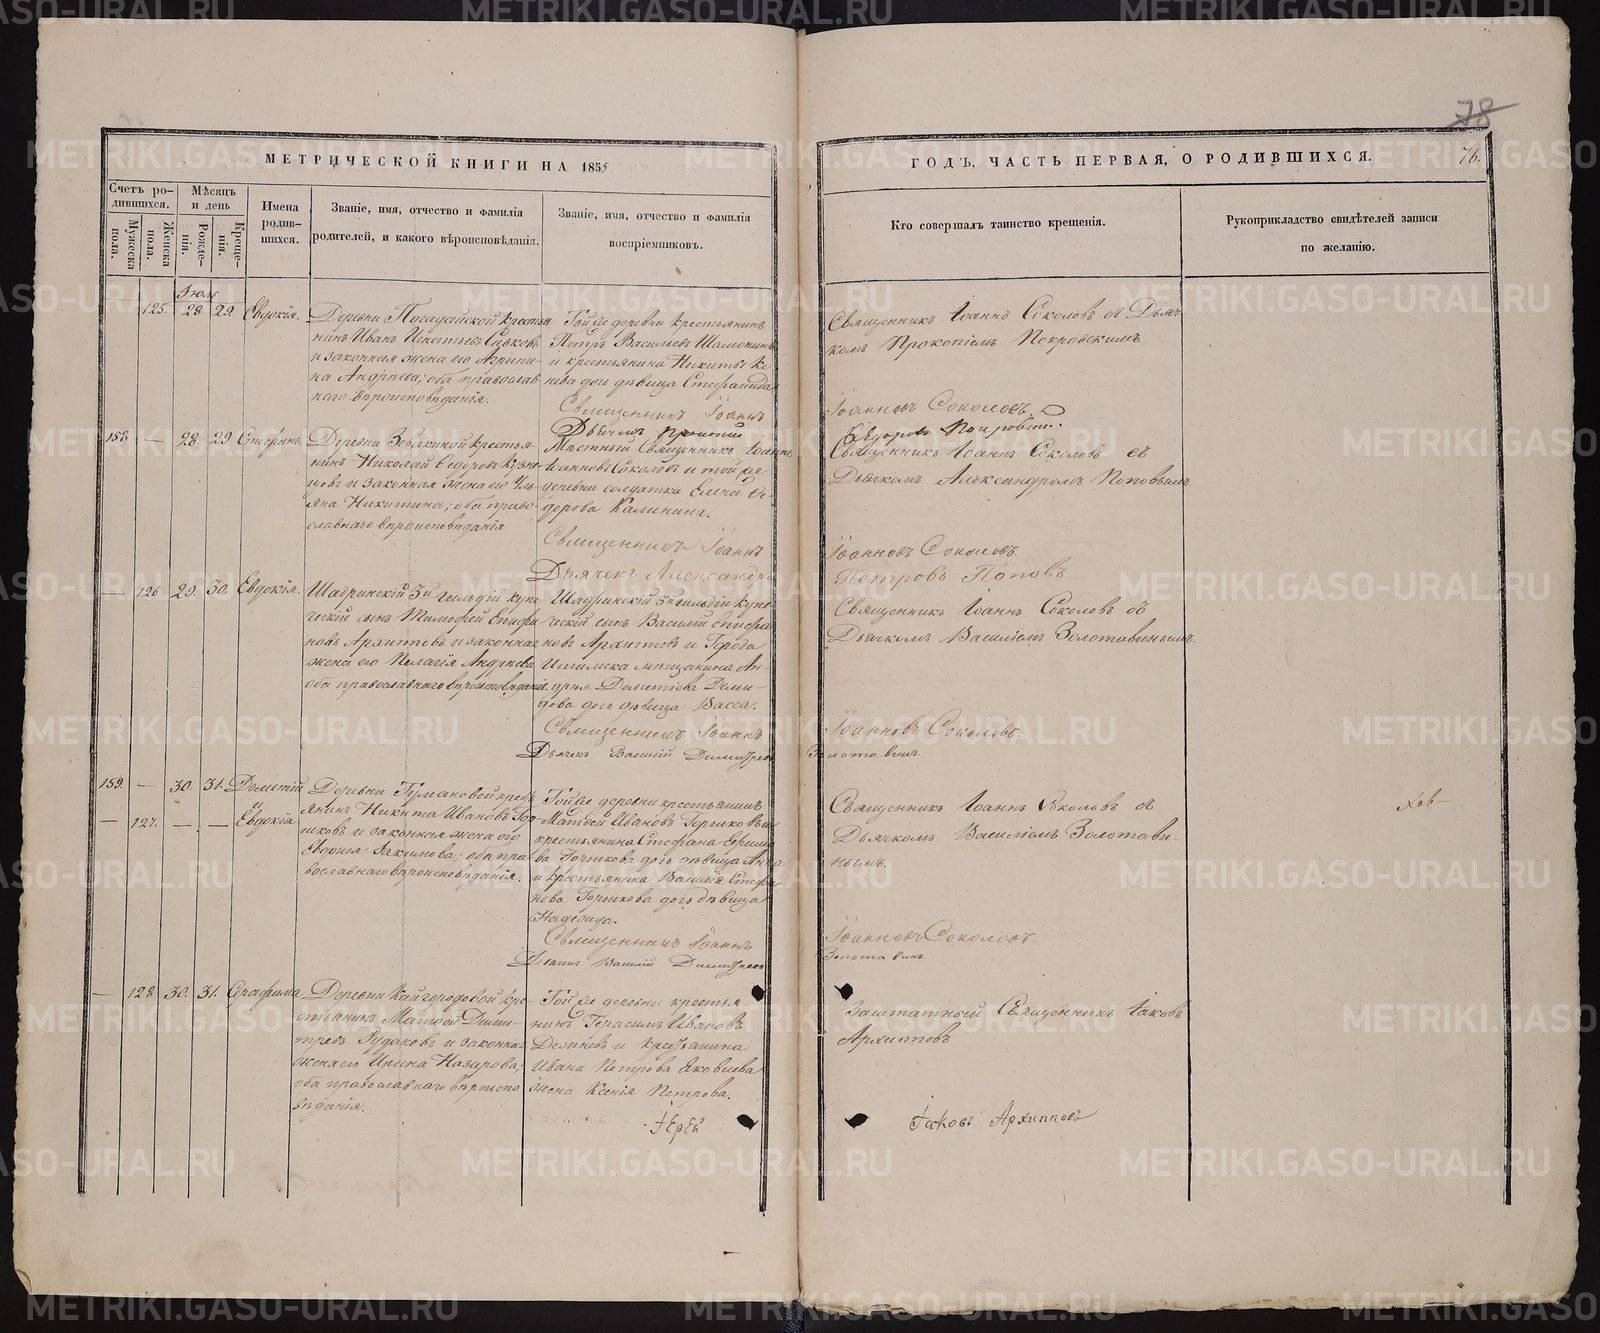 78
МЕТРИЧЕСКОЙ КНИГИ НА 1855
ГОДЪ, ЧАСТЬ ПЕРВАЯ, О РОДИВШИХСЯ.
76.
Счетъ ро-
дившихся.
Мужеска пола.
Женска пола.
Мѣсяцъ
и день
Рожде-
нія.
Креще-
нія.
Имена
родив-
шихся.
Званіе, имя, отчество и фамилія
родителей, и какого вѣроисповѣданія.
Званіе, имя, отчество и фамилія
воспріемниковъ.
Кто совершалъ таинство крещенія.
Рукоприкладство свидѣтелей записи
по желанію.
Іюль
125. 28. 29. Евдокія.
Деревни крестья
нинъ Иванъ Игнатьевъ
и законная жена его Агрипи-
на Андрѣева; оба православ-
наго вѣроисповѣданія.
Той же деревни крестьянинъ
Петръ Васильевъ
и крестьянина Никиты
дочь дѣвица
Священникъ Іоаннъ
Дьячекъ Прокопій
Священникъ Іоаннъ Соколовъ съ Дьяч
комъ Прокопіемъ Покровскимъ
Іоанновъ Соколовъ.
Ѳедоровъ Покровскій.
158. — 28. 29 Стефанъ.
Деревни крестья-
нинъ Николай Ѳедоровъ Кузне
цовъ и законная жена его Уль
яна Никитина; оба право-
славнаго вѣроисповѣданія
Мѣстный Священникъ Іоаннъ
Іоанновъ Соколовъ и той же
деревни солдатка Елена Ѳе
дорова Калинина.
Священникъ Іоаннъ
Дьячекъ Александръ
Священникъ Іоаннъ Соколовъ съ
Дьячкомъ Александромъ Поповымъ
Іоанновъ Соколовъ.
Петровъ Поповъ
— 126 29. 30. Евдокія.
Шадринскій 3й гильдіи купе
ческій сынъ Тимофей Епифа
новъ Архиповъ и законная
жена его Пелагія Андрѣева
оба православнаго вѣроисповѣданія.
Шадринскій 3й гильдіи купе
ческій сынъ Василій Епифа
новъ Архиповъ и Города
Ишимска мѣщанина Ан-
дрея Дометіева Деми-
дова дочь дѣвица Васса.
Священникъ Іоаннъ
Дьячекъ Василій Димитріевъ
Священникъ Іоаннъ Соколовъ съ
Дьячкомъ Василіемъ Золотавинымъ.
Іоанновъ Соколовъ.
Золотавинъ.
159. — 30. 31. Дометій
и
— 127. — — Евдокія
Деревни кресть
янинъ Никита Ивановъ Гор
шковъ и законная жена его
Евдокія Іакимова; оба пра
вославнаго вѣроисповѣданія.
Той же деревни крестьянинъ
Матѳей Ивановъ Горшковъ и
крестьянина Стефана Ефимо
ва Горшкова дочь дѣвица Анна
и крестьянина Василія Стефа
нова Горшкова дочь дѣвица
Надежда.
Священникъ Іоаннъ
Дьячекъ Василій Димитріевъ
Священникъ Іоаннъ Соколовъ съ
Дьячкомъ Василіемъ Золотави-
нымъ.
Іоанновъ Соколовъ.
Золотавинъ
— 128 30. 31. Серафима
Деревни Кайгородовой кре-
стьянинъ Матѳей Дими-
тріевъ Рудаковъ и законная
жена его Ирина Назарова;
оба православнаго вѣроиспо-
вѣданія.
Той же деревни крестья
нинъ Герасимъ Ивановъ
и крестьянина
Ивана Петрова Яковлева
жена Ксенія Петрова.
Іерей
Заштатный Священникъ Іаковъ
Архиповъ
Іаковъ Архиповъ
METRIKI.GASO-URAL.RU